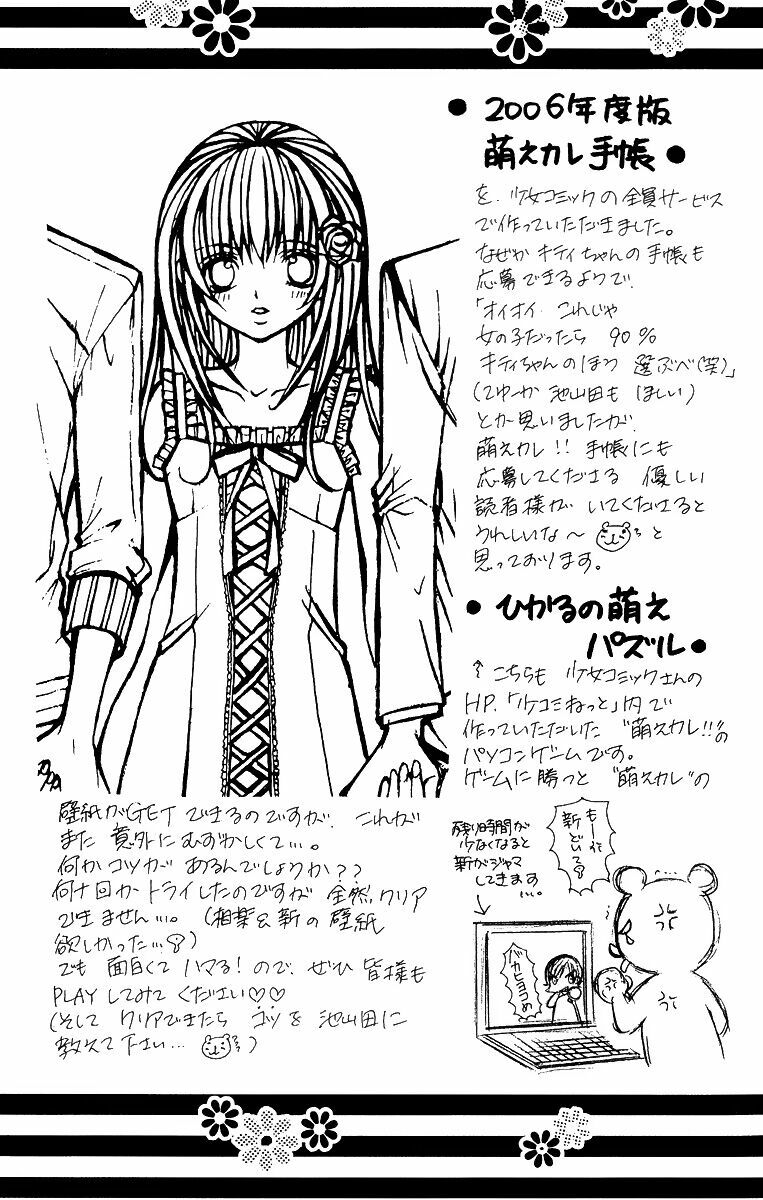 ● 2006年度版
萌えカレ手帳 ●
を、少女コミックの全員サービス
で作っていただきました。
なぜか キティちゃんの手帳も
応募できるようで、
「オイオイ これじゃ
女の子だったら 90%
キティちゃんのほう 選ぶべ(笑)」
(てゆーか 池山田も ほしい)
とか思いましたが、
萌えカレ!! 手帳にも
応募してくださる 優しい
読者様が いてくださると
うれしいな〜 と
思っております。
● ひかるの萌え
パズル ●
↑ こちらも 少女コミックさんの
HP、「少コミねっと」内で
作っていただいた "萌えカレ!!"の
パソコンゲームです。
ゲームに勝つと "萌えカレ"の
壁紙がGETできるのですが、これが
また 意外にむずかしくて…。
何かコツが あるんでしょうか??
何十回かトライしたのですが 全然クリア
できません…。(相葉&新の壁紙
欲しかった…)
でも 面白くて ハマる!ので、ぜひ 皆様も
PLAYしてみて ください♡♡
(そして クリアできたら コツを 池山田に
教えて下さい… )
残り時間が
少なくなると
新がジャマ
してきます
…。
もーっ
新
どいてろ